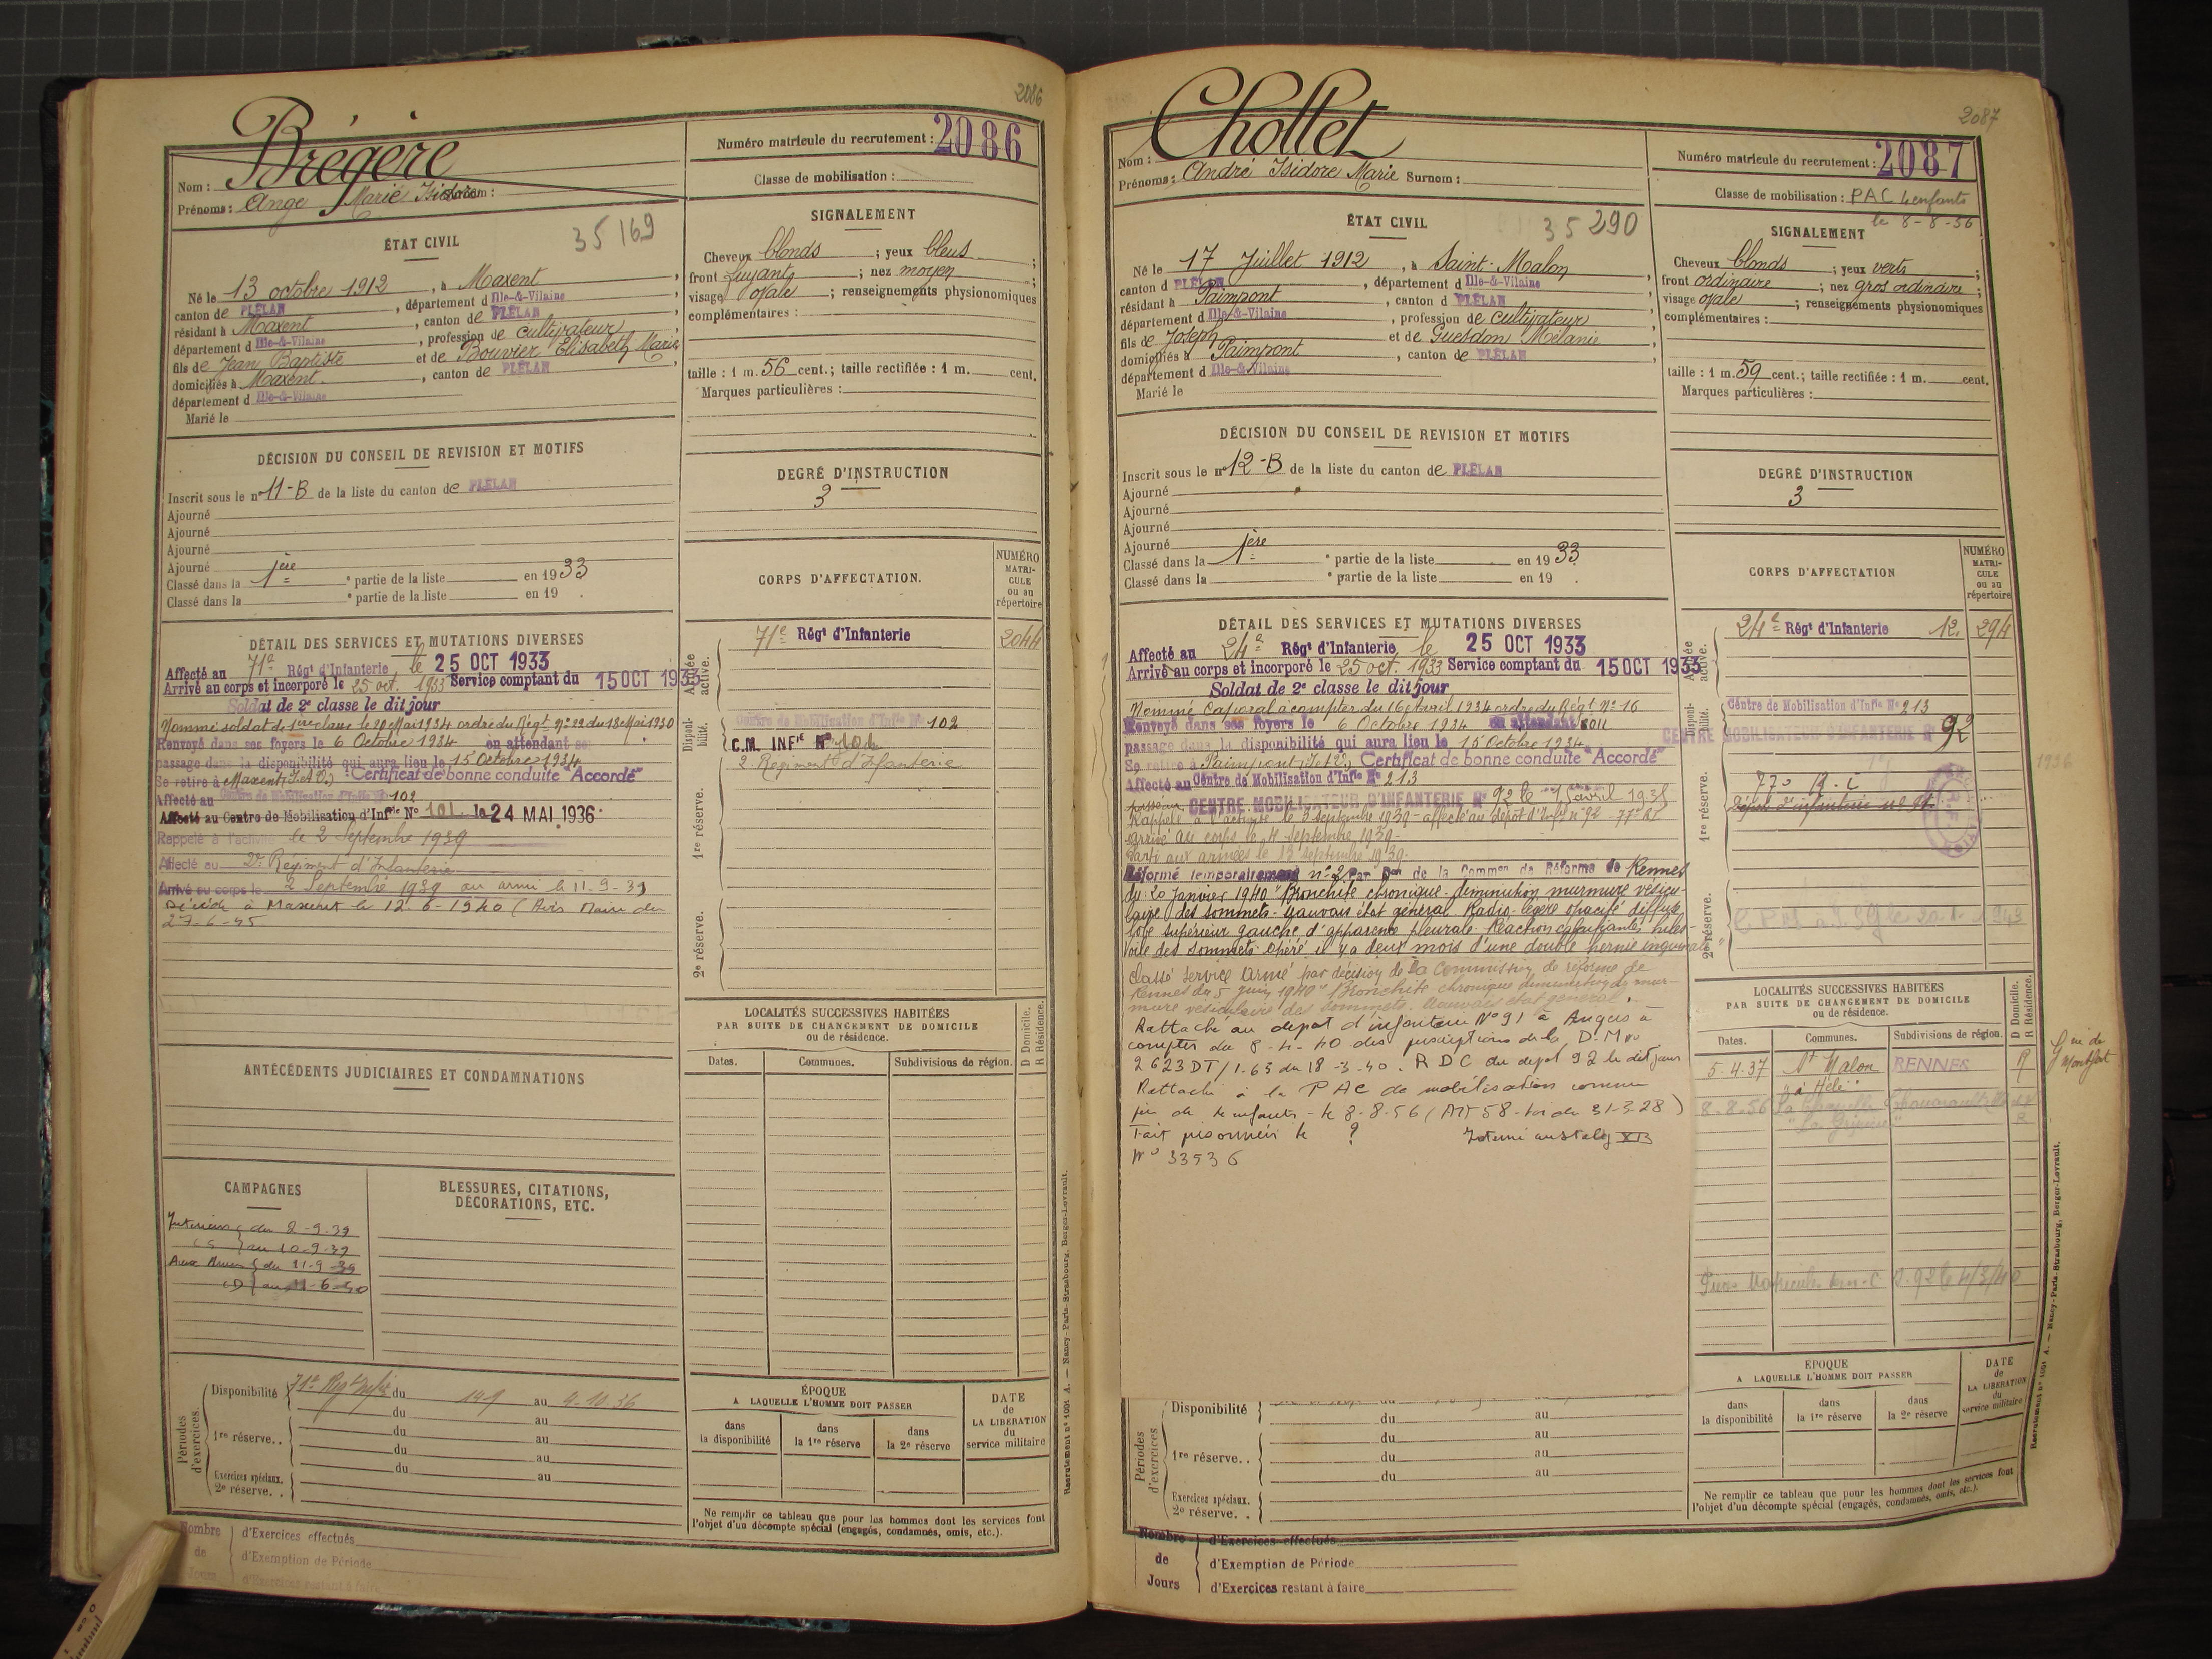 2086
Brégère
Nom :
Prénoms : Ange Marie Isidore
Numéro matricule du recrutement : 2086
Classe de mobilisation :
ÉTAT CIVIL
35 169
Né le 13 octobre 1912, à Maxent,
canton de PLÉLAN, département d Ille-&-Vilaine,
résidant à Maxent, canton de PLÉLAN,
département d Ille-&-Vilaine, profession de cultivateur
fils de Jean Baptiste et de Bouvier Elisabeth Marie
domiciliés à Maxent, canton de PLÉLAN
département d Ille-&-Vilaine
Marié le
SIGNALEMENT
Cheveux blonds ; yeux bleus ;
front fuyant ; nez moyen
visage ovale ; renseignements physionomiques
complémentaires :
taille : 1 m. 56 cent.; taille rectifiée : 1 m. cent.
Marques particulières :
DÉCISION DU CONSEIL DE REVISION ET MOTIFS
Inscrit sous le n° 11-B de la liste du canton de PLÉLAN
Ajourné
Ajourné
Ajourné
Ajourné
Classé dans la 1ère partie de la liste en 1933
Classé dans la e partie de la liste en 19 .
DEGRÉ D'INSTRUCTION
3
CORPS D'AFFECTATION.
NUMÉRO
MATRI-
CULE
ou au
répertoire
DÉTAIL DES SERVICES ET MUTATIONS DIVERSES
Affecté au 71e Régt d'Infanterie le 25 OCT 1933
Arrivé au corps et incorporé le 25 oct. 1933 Service comptant du 15 OCT 1933
Soldat de 2e classe le dit jour
Nommé soldat de 1ère classe le 20 Mai 1934 ordre du Régt N° 22 du 18 Mai 1930
Renvoyé dans ses foyers le 6 Octobre 1934 en attendant se
passage dans la disponibilité qui aura lieu le 15 Octobre 1934
Se retire à Maxent (I.et V.) Certificat de bonne conduite "Accordé"
Affecté au Centre de Mobilisation d'Infie N° 102
Affecté au Centre de Mobilisation d'Infie N° 101 le 24 MAI 1936
Rappelé à l'activité le 2 Septembre 1939
Affecté au 2e Régiment d'Infanterie
Arrivé au corps le 2 Septembre 1939 au armé le 11-9-39
Décédé à Maxent le 12-6-1940 (Avis Maire du
27-6-45
Armée
active.
71e Régt d'Infanterie 2044
Disponi-
bilité.
Centre de Mobilisation d'Infie N° 102
C.M. INFie N° 101
2 Régiment d'Infanterie
1re réserve.
2e réserve.
ANTÉCÉDENTS JUDICIAIRES ET CONDAMNATIONS
LOCALITÉS SUCCESSIVES HABITÉES
PAR SUITE DE CHANGEMENT DE DOMICILE
ou de résidence.
D Domicile.
R Résidence.
Dates. Communes. Subdivisions de région.
CAMPAGNES
du 2-9-39
au 10-9-39
du 11-9-39
(D) au 11-6-40
BLESSURES, CITATIONS,
DÉCORATIONS, ETC.
Périodes
d'exercices.
Disponibilité 71e Regt Infie du 14-9 au 4-10-36
du au
1re réserve.. du au
du au
du au
Exercices spéciaux.
2e réserve. .
ÉPOQUE
A LAQUELLE L'HOMME DOIT PASSER
dans
la disponibilité
dans
la 1re réserve
dans
la 2e réserve
DATE
de
LA LIBERATION
du
service militaire
Ne remplir ce tableau que pour les hommes dont les services font
l'objet d'un décompte spécial (engagés, condamnés, omis, etc.).
Nombre
de
Jours
d'Exercices effectués
d'Exemption de Période
d'Exercices restant à faire
Recrutement n° 1001 A. — Nancy-Paris-Strasbourg, Berger-Levrault.
2087
Chollet
Nom :
Prénoms : André Isidore Marie Surnom :
Numéro matricule du recrutement : 2087
Classe de mobilisation : PAC 4 enfants
le 8-8-56
ÉTAT CIVIL
35 290
Né le 17 Juillet 1912, à Saint-Malon
canton d PLÉLAN, département d Ille-&-Vilaine,
résidant à Paimpont, canton d PLÉLAN
département d Ille-&-Vilaine, profession de cultivateur
fils de Joseph et de Guesdon Mélanie
domiciliés à Paimpont, canton de PLÉLAN
département d Ille-&-Vilaine
Marié le
SIGNALEMENT
Cheveux blonds ; yeux verts ;
front ordinaire ; nez gros ordinaire ;
visage ovale ; renseignements physionomiques
complémentaires :
taille : 1 m. 59 cent.; taille rectifiée : 1 m. cent.
Marques particulières :
DÉCISION DU CONSEIL DE REVISION ET MOTIFS
Inscrit sous le n° 12-B de la liste du canton de PLÉLAN
Ajourné
Ajourné
Ajourné
Ajourné
Classé dans la 1ère partie de la liste en 1933
Classé dans la e partie de la liste en 19 .
DEGRÉ D'INSTRUCTION
3
CORPS D'AFFECTATION
NUMÉRO
MATRI-
CULE
ou au
répertoire
DÉTAIL DES SERVICES ET MUTATIONS DIVERSES
Affecté au 24e Régt d'Infanterie le 25 OCT 1933
Arrivé au corps et incorporé le 25 oct. 1933 Service comptant du 15 OCT 1933
Soldat de 2e classe le dit jour
Nommé Caporal à compter du 16 avril 1934 ordre du Régt N° 16
Renvoyé dans ses foyers le 6 Octobre 1934 en attendant son
passage dans la disponibilité qui aura lieu le 15 Octobre 1934
Se retire à Paimpont, (I.et V.) Certificat de bonne conduite "Accordé"
Affecté au Centre de Mobilisation d'Infie N° 213
passe au CENTRE MOBILISATEUR D'INFANTERIE N° 92 le avril 193
Rappelé à l'activité le 3 septembre 1939 - affecté au dépôt d'Infie n° 92 - 77e RI
arrivé au corps le 4 septembre 1939 -
Parti aux armées le 13 septembre 1939.
Réformé temporairement n° 2 Par Don de la Common de Réforme de Rennes
du 20 Janvier 1940 "Bronchite chronique - diminution murmure vésicu-
laire des sommets - mauvais état général Radio - légère opacité diffuse
lobe supérieur gauche d'apparence pleurale. Réaction calcifiante hiles -
voile des sommets. Opéré il y a deux mois d'une double hernie inguinale"
Classé Service Armé par décision de la Commission de réforme de
Rennes du 5 juin 1940 "Bronchite chronique diminution du mur-
mure vésiculaire des sommets. Mauvais état général.
Rattaché au dépôt d'infanterie N° 91 à Angers à
compter du 8-4-40 des prescriptions de la D.M.
2623 DT/1.63 du 18-3-40. R D C du dépôt 92 le dit jour
Rattaché à la PAC de mobilisation comme
père de 4 enfants - le 8-8-56 (ART 58 - loi du 31-3-28)
Fait prisonnier le ? Interné au stalag XB
N° 33536
Armée
active.
24e Régt d'Infanterie 12. 294
Disponi-
bilité.
Centre de Mobilisation d'Infie N° 213
CENTRE MOBILISATEUR D'INFANTERIE N° 92
1936
1re réserve.
77e R. I
Dépôt d'infanterie n° 91
2e réserve.
LOCALITÉS SUCCESSIVES HABITÉES
PAR SUITE DE CHANGEMENT DE DOMICILE
ou de résidence.
D Domicile.
R Résidence.
Dates. Communes. Subdivisions de région.
5-4-37 St Malon RENNES R
8-8-56
Montfort
ÉPOQUE
A LAQUELLE L'HOMME DOIT PASSER
dans
la disponibilité
dans
la 1re réserve
dans
la 2e réserve
DATE
de
LA LIBERATION
du
service militaire
Périodes
d'exercices.
Disponibilité
du au
1re réserve.. du au
du au
du au
Exercices spéciaux.
2e réserve. .
Ne remplir ce tableau que pour les hommes dont les services font
l'objet d'un décompte spécial (engagés, condamnés, omis, etc.).
Nombre
de
Jours
d'Exercices effectués
d'Exemption de Période
d'Exercices restant à faire
Recrutement n° 1001 A. — Nancy-Paris-Strasbourg, Berger-Levrault.